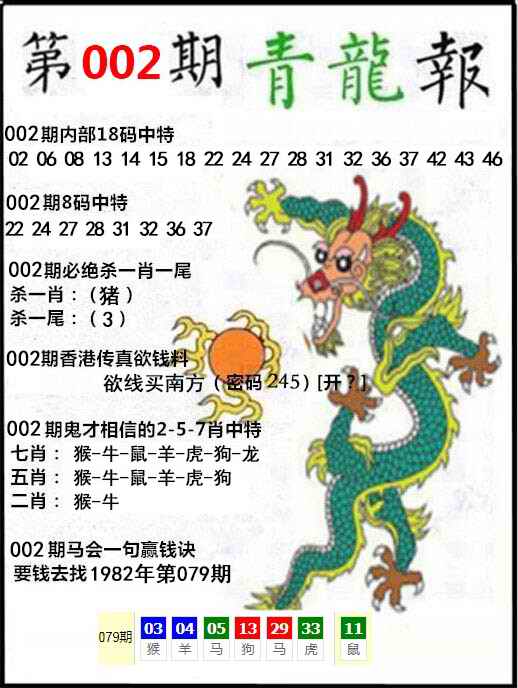 第002期青龍報
002期内部18码中特
02 06 08 13 14 15 18 22 24 27 28 31 32 36 37 42 43 46
002期8码中特
22 24 27 28 31 32 36 37
002期必绝杀一肖一尾
杀一肖：（猪）
杀一尾：（3）
002期香港传真欲钱料
欲线买南方（密码245）[开？]
002期鬼才相信的2-5-7肖中特
七肖： 猴-牛-鼠-羊-虎-狗-龙
五肖： 猴-牛-鼠-羊-虎-狗
二肖： 猴-牛
002期马会一句赢钱诀
要钱去找1982年第079期
079期 03 04 05 13 29 33 11
猴 羊 马 狗 马 虎 鼠